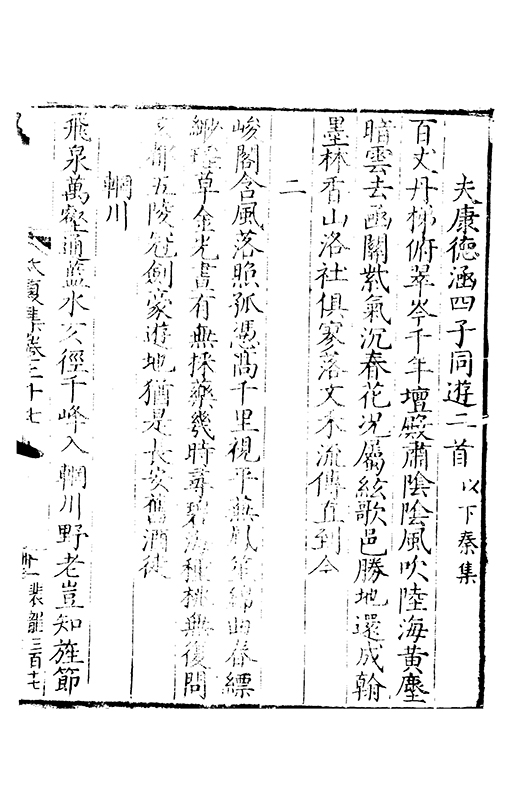 夫康德涵四子同遊二首 以下秦集
百丈丹梯俯翠岑千年壇殿肅陰陰風吹陸海黃塵
暗雲去函關紫氣沉春花况屬絃歌邑勝地還成翰
墨林香山洛社俱寥落文采流傳直到今
二
峻閣含風落照孤憑高千里視平蕪鳳笙綿曲春縹
緲瑤草金光晝有無採藥幾時尋碧海種桃無復問
玄都五陵冠劍豪遊地猶是長安舊酒徒
輞川
飛泉萬壑通藍水玄徑千峰入輞川野老豈知旌節
集卷三十七
裴龍三百七